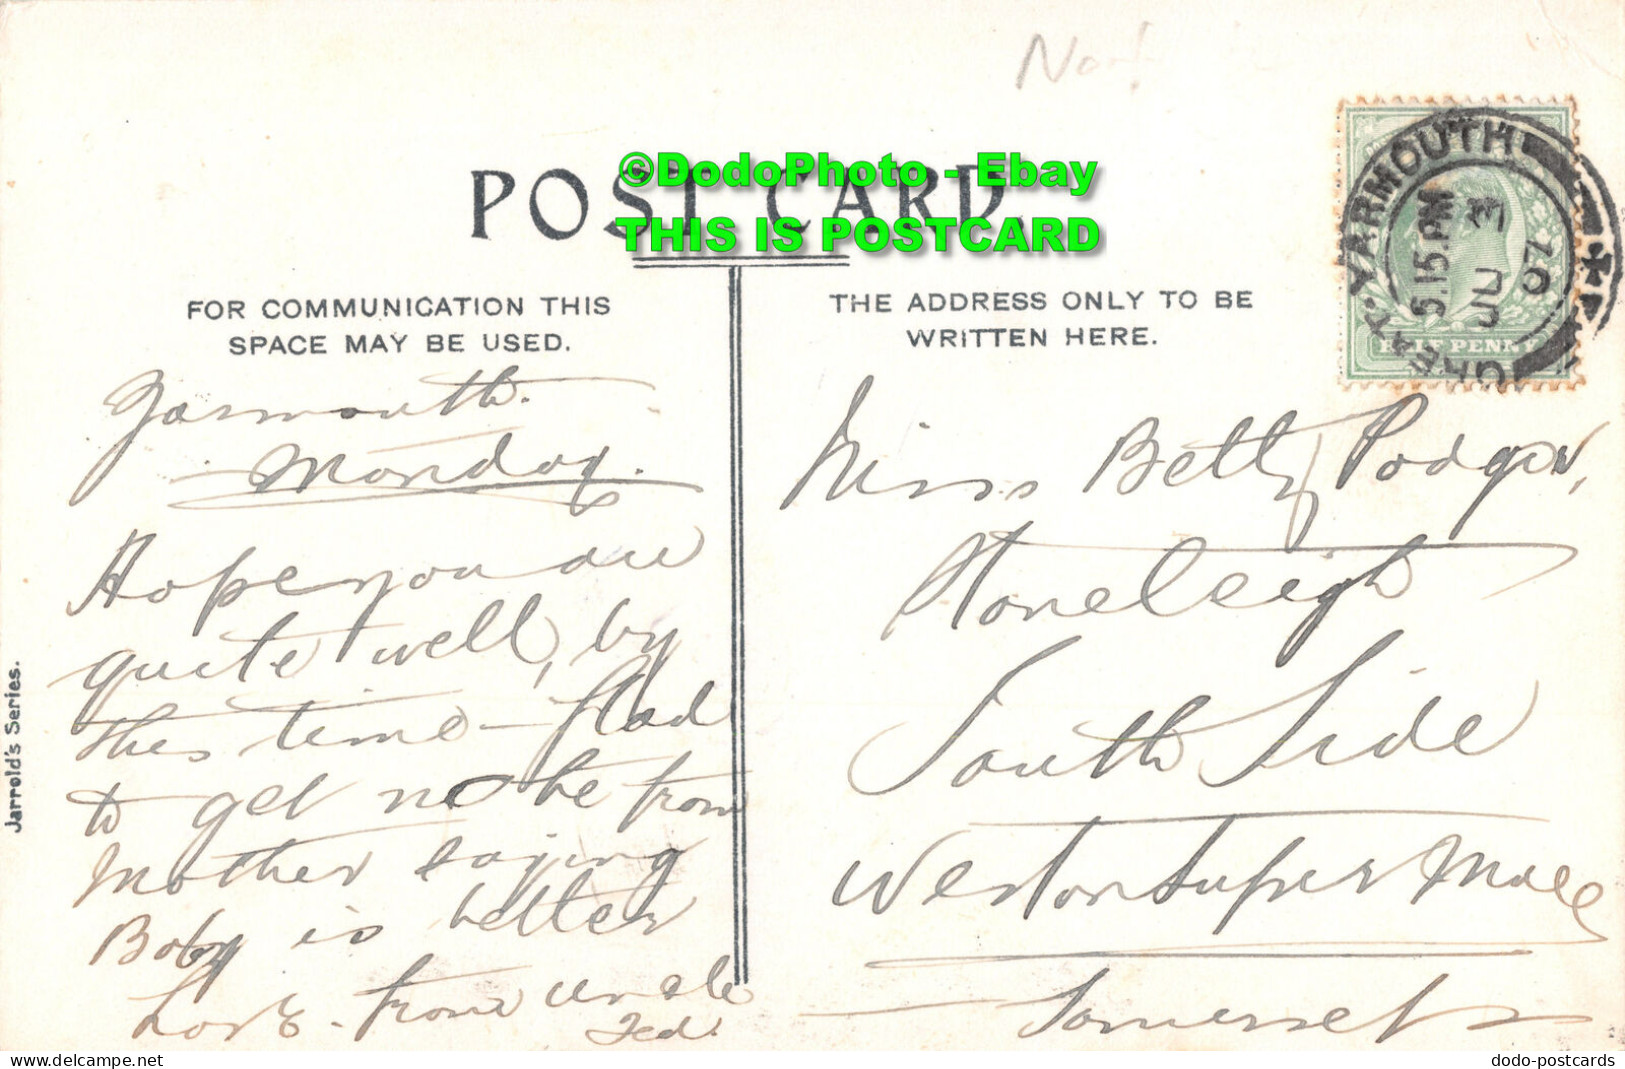 No
©DodoPhoto - Ebay
POST CARD.
THIS IS POSTCARD
FOR COMMUNICATION THIS
SPACE MAY BE USED.
THE ADDRESS ONLY TO BE
WRITTEN HERE.
GREAT-YARMOUTH
5.15.PM
JU 3
07
HALF PENNY
Yarmouth.
Monday.
Hope you are
quite well, by
this time – Glad
to get note from
Mother saying
Baby is better
Love. from Uncle
Ted.
Miss Betty
Stoneleigh
South Side
Weston Super Mare
Somerset
Jarrold's Series.
dodo-postcards.delcampe.net
dodo-postcards